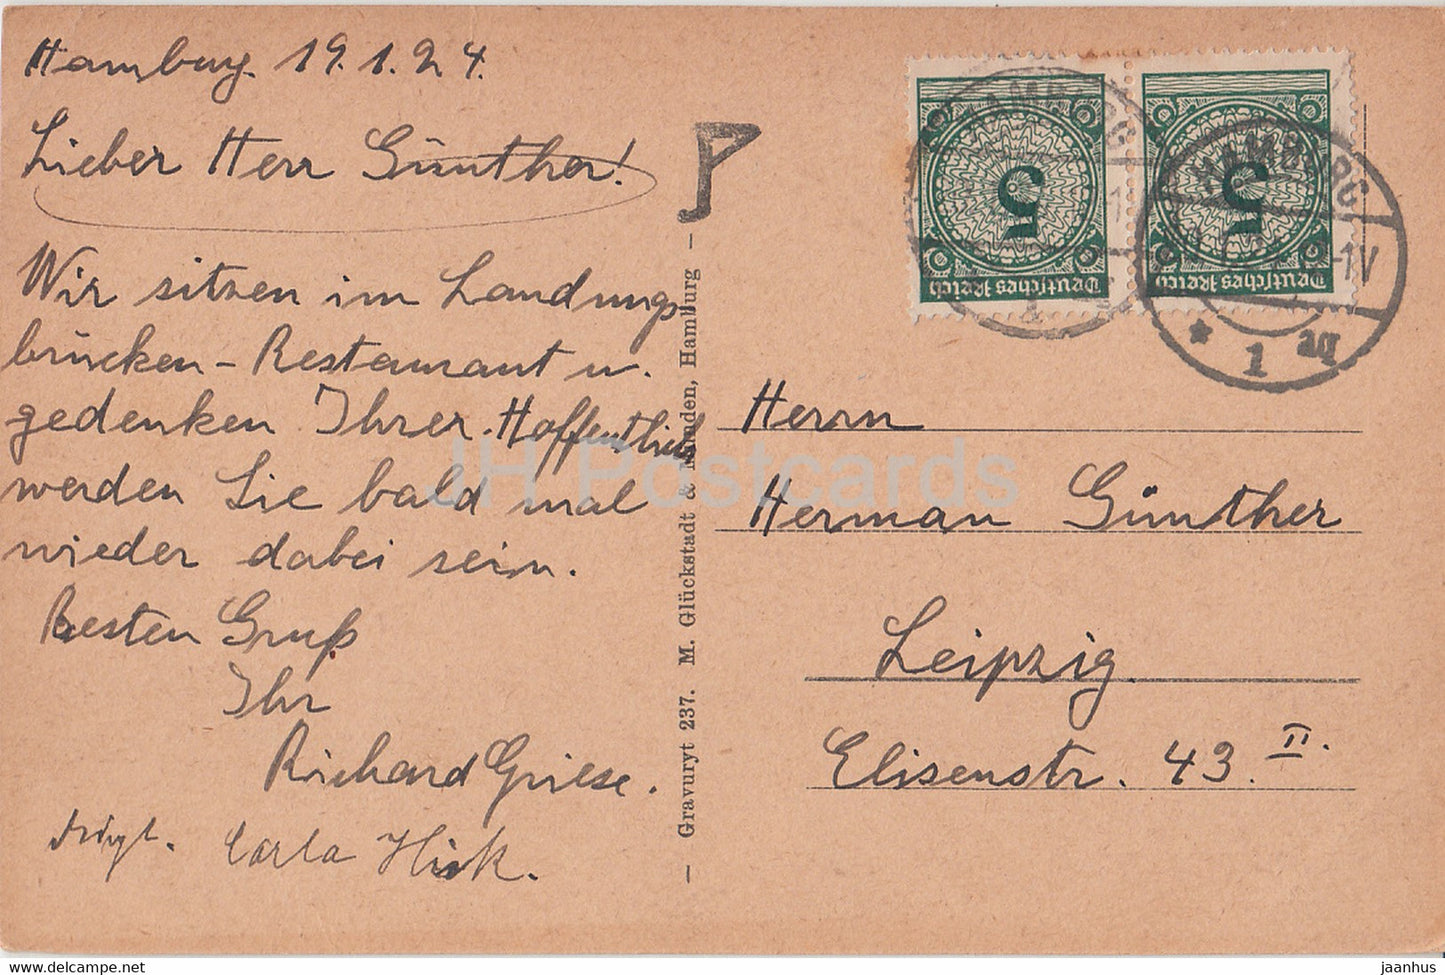 Hamburg. 19.1.24.
Lieber Herr Günther!
Wir sitzen im Landungs
brücken-Restaurant u.
gedenken Ihrer. Hoffentlich
werden Sie bald mal
wieder dabei sein.
Besten Gruß
Ihr
Richard Griese.
Carla
- Gravuryt 237. M. Glückstadt & Münden, Hamburg -
5
Deutsches Reich
5
Deutsches Reich
HAMBURG
HAMBURG
1-1V
* 1
Herrn
Herman Günther
Leipzig.
Elisenstr. 43. II.
JH Postcards
delcampe.net
jaanhus